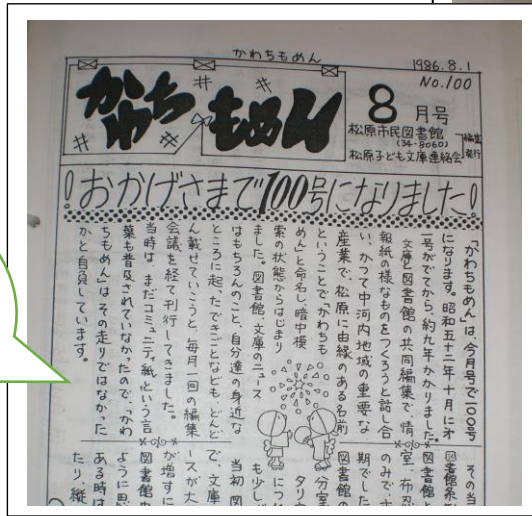 かわちもめん
1986.8.1
No.100
かわち もめん
8月号
松原市民図書館
(34-8060)
松原子ども文庫連絡会
編集
発行
!おかげさまで100号になりました!
「かわちもめん」は、今月号で一〇〇号
になります。昭和五十二年十月にオ
一号がでてから、約九年かかりました。
文庫と図書館の共同編集で、情
報紙の様なものをつくろうと話し合
い、かつて中河内地域の重要な
産業で、松原に由緒のある名前
ということで「かわちも
めん」と命名し、暗中模
索の状態からはじまり
ました。図書館、文庫のニュース
はもちろんのこと、自分達の身近な
ところに起ったできごとなども、どんど
ん載せていこうと、毎月一回の編集
会議を経て刊行してきました。
当時は、まだコミュニティ紙という言
葉も普及されていなかったので、「かわ
ちもめん」はその走りではなかった
かと自負しています。
その当
図書館条
図書館と
室、布忍
のみで、
期でした
図書館の
分室
タリウ
につれ
も少し
当初、図
で、文庫
ースが大
が増すに
図書館
ように思
ある時は
たり、縦